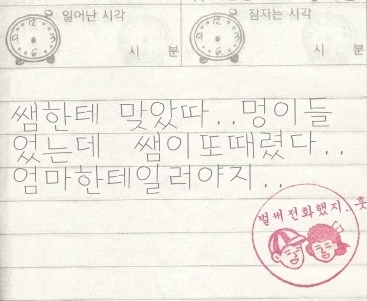 일어난 시각 잠자는 시각
시 분 시 분
쌤한테 맞았따..멍이들
었는데 쌤이또때렸다..
엄마한테일러야지..
벌써전화했지..훗